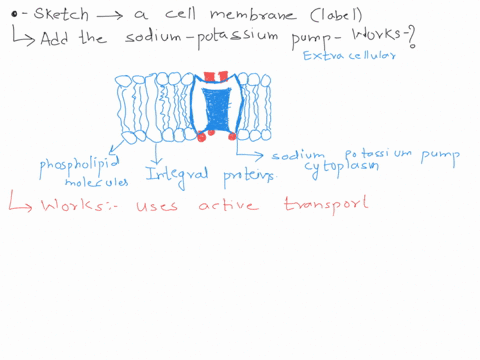 •- Sketch → a cell membrane (label)
↳ Add the sodium-potassium pump- Works-?
Extracellular
phospholipid molecules
Integral proteins.
sodium potassium pump
cytoplasm
↳ Works:- uses active transport